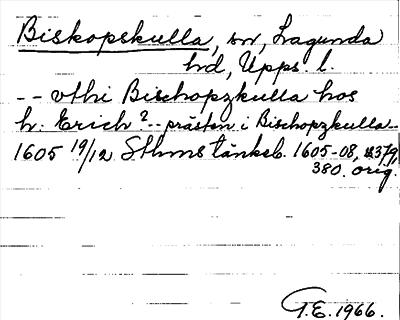 Biskopskulla, sn, Lagunda
hd, Upps. l.
-- vthi Bischopzkulla hos
h. Erich ?-- prästen i Bischopzkulla--
1605 19/12 Sthms tänkeb. 1605-08, s. 379,
380. orig.
G.E. 1966.